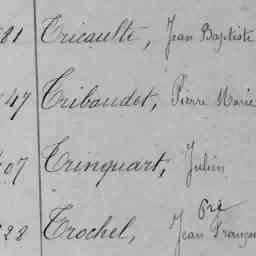 81 Tricault, Jean Baptiste
47 Tribaudet, Pierre Marie
07 Trinquart, Julien
28 Trochel, Jean François